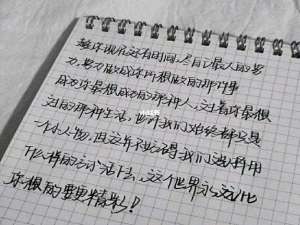 趁你现在还有时间，尽自己最大的努
力，努力做成你所想做的那件事
成为你最想成为的那种人，过着你最想
过的那种生活，也许我们始终都只是
一个小人物，但这并不妨碍我们选择用
什么样的方式活下去，这个世界永远比
你想的要更精彩！